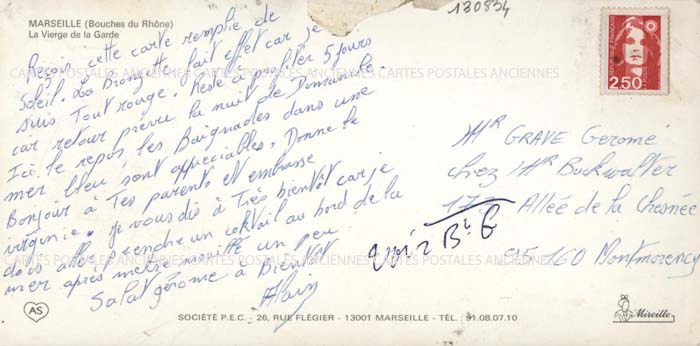 MARSEILLE (Bouches du Rhône)
La Vierge de la Garde
130834
Reçois cette carte remplie de
Soleil. La Bronzette fait effet car je
suis Tout rouge. Reste à profiter 5 jours
car retour prévu la nuit de Dimanche.
Ici le repos, les Baignades dans une
mer bleu sont appréciables. Donne le
Bonjour à Tes parents et embrasse
virginie. je vous dis à Très bientôt car je
dois aller prendre un coktail au bord de la
mer après m'être mouillé un peu
Salut gérome à Bientôt
Alain
REPUBLIQUE FRANÇAISE
2,50
LA POSTE
Mr GRAVE Geromé
chez Mr Buckwalter
Allée de la Chesnée
95160 Montmorency
CARTES POSTALES ANCIENNES
AS
SOCIÉTÉ P.E.C. - 26, RUE FLÉGIER - 13001 MARSEILLE - TÉL. : 91.08.07.10
Mireille